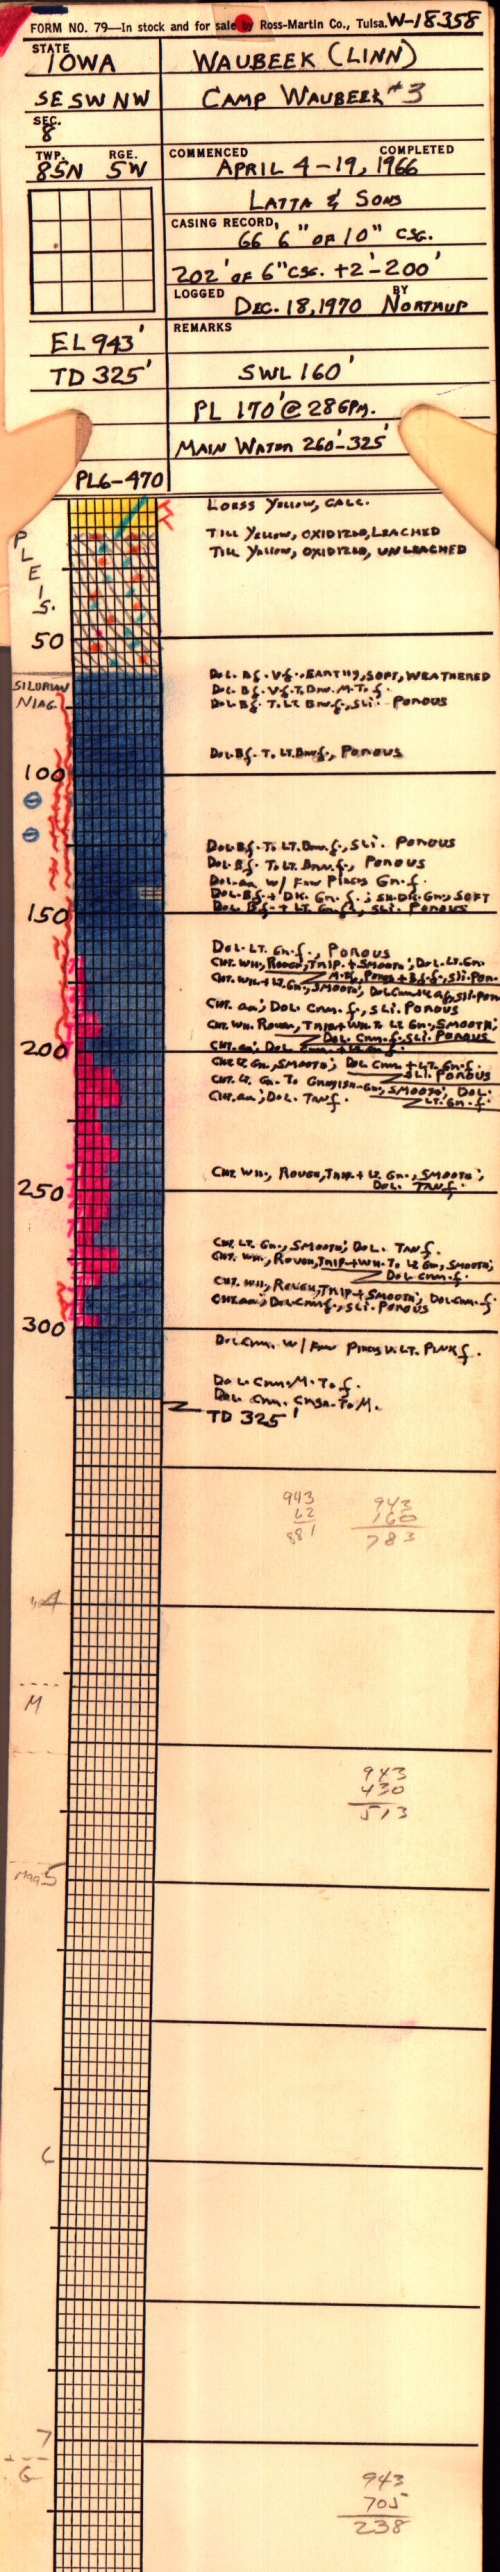 FORM NO. 79—In stock and for sale by Ross-Martin Co., Tulsa. W-18358
STATE
IOWA WAUBEEK (LINN)
SE SW NW CAMP WAUBEEK #3
SEC.
8
TWP. RGE. COMMENCED COMPLETED
85N 5W APRIL 4-19, 1966
LATTA & SONS
CASING RECORD
66'6" OF 10" CSG.
202' OF 6" CSG. +2'-200'
LOGGED BY
DEC. 18, 1970 NORTHUP
EL 943' REMARKS
TD 325' SWL 160'
PL 170' @ 28GPM.
MAIN WATER 260'-325'
PL6-470
LOESS YELLOW, CALC.
TILL YELLOW, OXIDIZED, LEACHED
TILL YELLOW, OXIDIZED, UNLEACHED
PLEIS.
50
DOL. BF. VF., EARTHY, SOFT, WEATHERED
SILURIAN
NIAG.
DOL. BF. VF. T. BRN. M. T. F.
DOL. BF. T. LT. BRN. F., SLI. POROUS
DOL. BF. T. LT. BRN. F., POROUS
100
DOL. BF. TO LT. BRN. F., SLI. POROUS
DOL. BF. TO LT. BRN. F., POROUS
DOL. AA W/ FEW PIECES GN. F.
DOL. BF. + DK. GN. F.; SH. DK. GN., SOFT
DOL. BF. + LT. GN. F., SLI. POROUS
150
DOL. LT. GN. F., POROUS
CHT. WH., ROUGH, TRIP. + SMOOTH; DOL. LT. GN.
CHT. WH. + LT. GN., SMOOTH;
CHT. AA; DOL. CRM. F., SLI. POROUS
CHT. WH. ROUGH, TRIP + WH. TO LT GN., SMOOTH;
DOL. CRM. F. SLI. POROUS
200
CHT. LT. GN., SMOOTH; DOL CRM + LT. GN. F.
SLI. POROUS
CHT. LT. GN. TO GRAYISH-GN., SMOOTH; DOL.
LT. GN. F.
CHT. AA; DOL. TAN F.
CHT. WH., ROUGH, TRIP. + LT. GN., SMOOTH;
DOL. TAN F.
250
CHT. LT. GN., SMOOTH; DOL. TAN F.
CHT. WH., ROUGH, TRIP + WH. TO LT GN., SMOOTH;
DOL CRM. F.
CHT. WH., ROUGH, TRIP + SMOOTH; DOL CRM. F.
CHT. AA; DOL CRM F., SLI. POROUS
300
DOL CRM. W/ FEW PIECES V. LT. PINK F.
DOL. CRM. M. TO F.
DOL. CRM. CRSE. TO M.
TD 325'
943 943
62 160
881 783
4
M
943
430
513
Maq 5
6
7
G
943
705
238